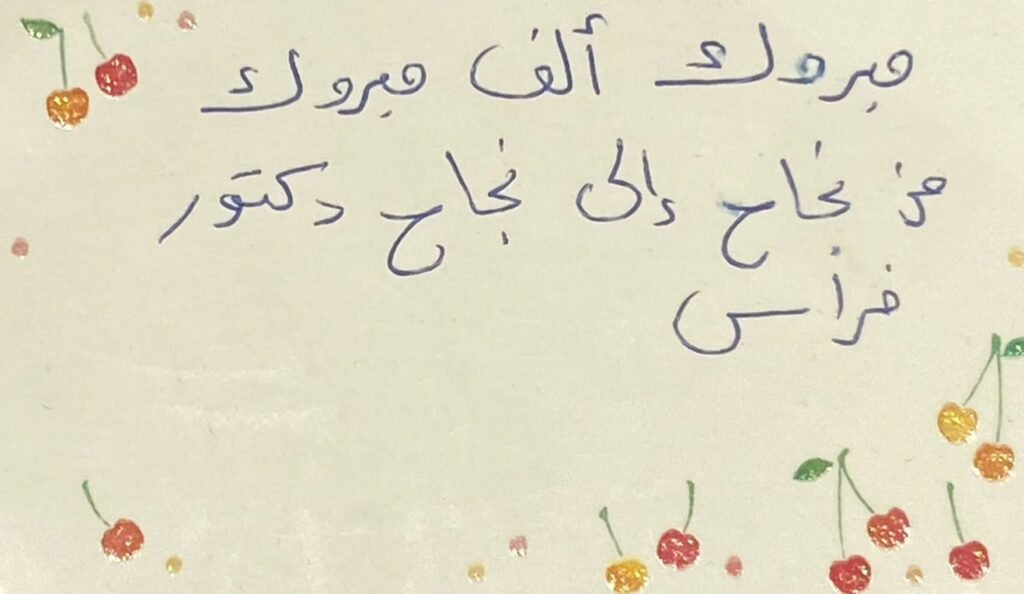 مبروك ألف مبروك
من نجاح إلى نجاح دكتور
فراس